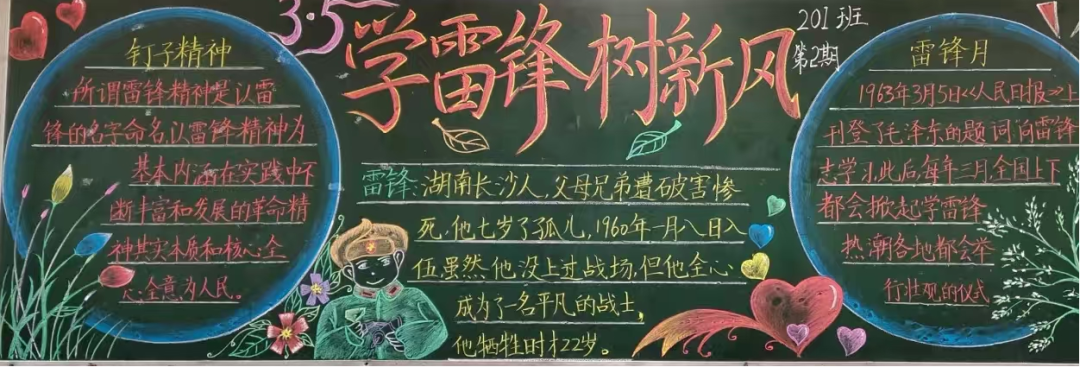 3.5
学雷锋 树新风
201班
第2期
钉子精神
所谓雷锋精神是以雷
锋的名字命名,以雷锋精神为
基本内涵在实践中不
断丰富和发展的革命精
神其实本质和核心全
心全意为人民。
雷锋:湖南长沙人,父母兄弟遭破害惨
死,他七岁了孤儿,1960年一月八日入
伍虽然他没上过战场,但他全心
成为了一名平凡的战士,
他牺牲时才22岁。
雷锋月
1963年3月5日<<人民日报>>上
刊登了毛泽东的题词向雷锋
志学习,此后,每年三月,全国上下
都会掀起学雷锋
热潮各地都会举
行壮观的仪式